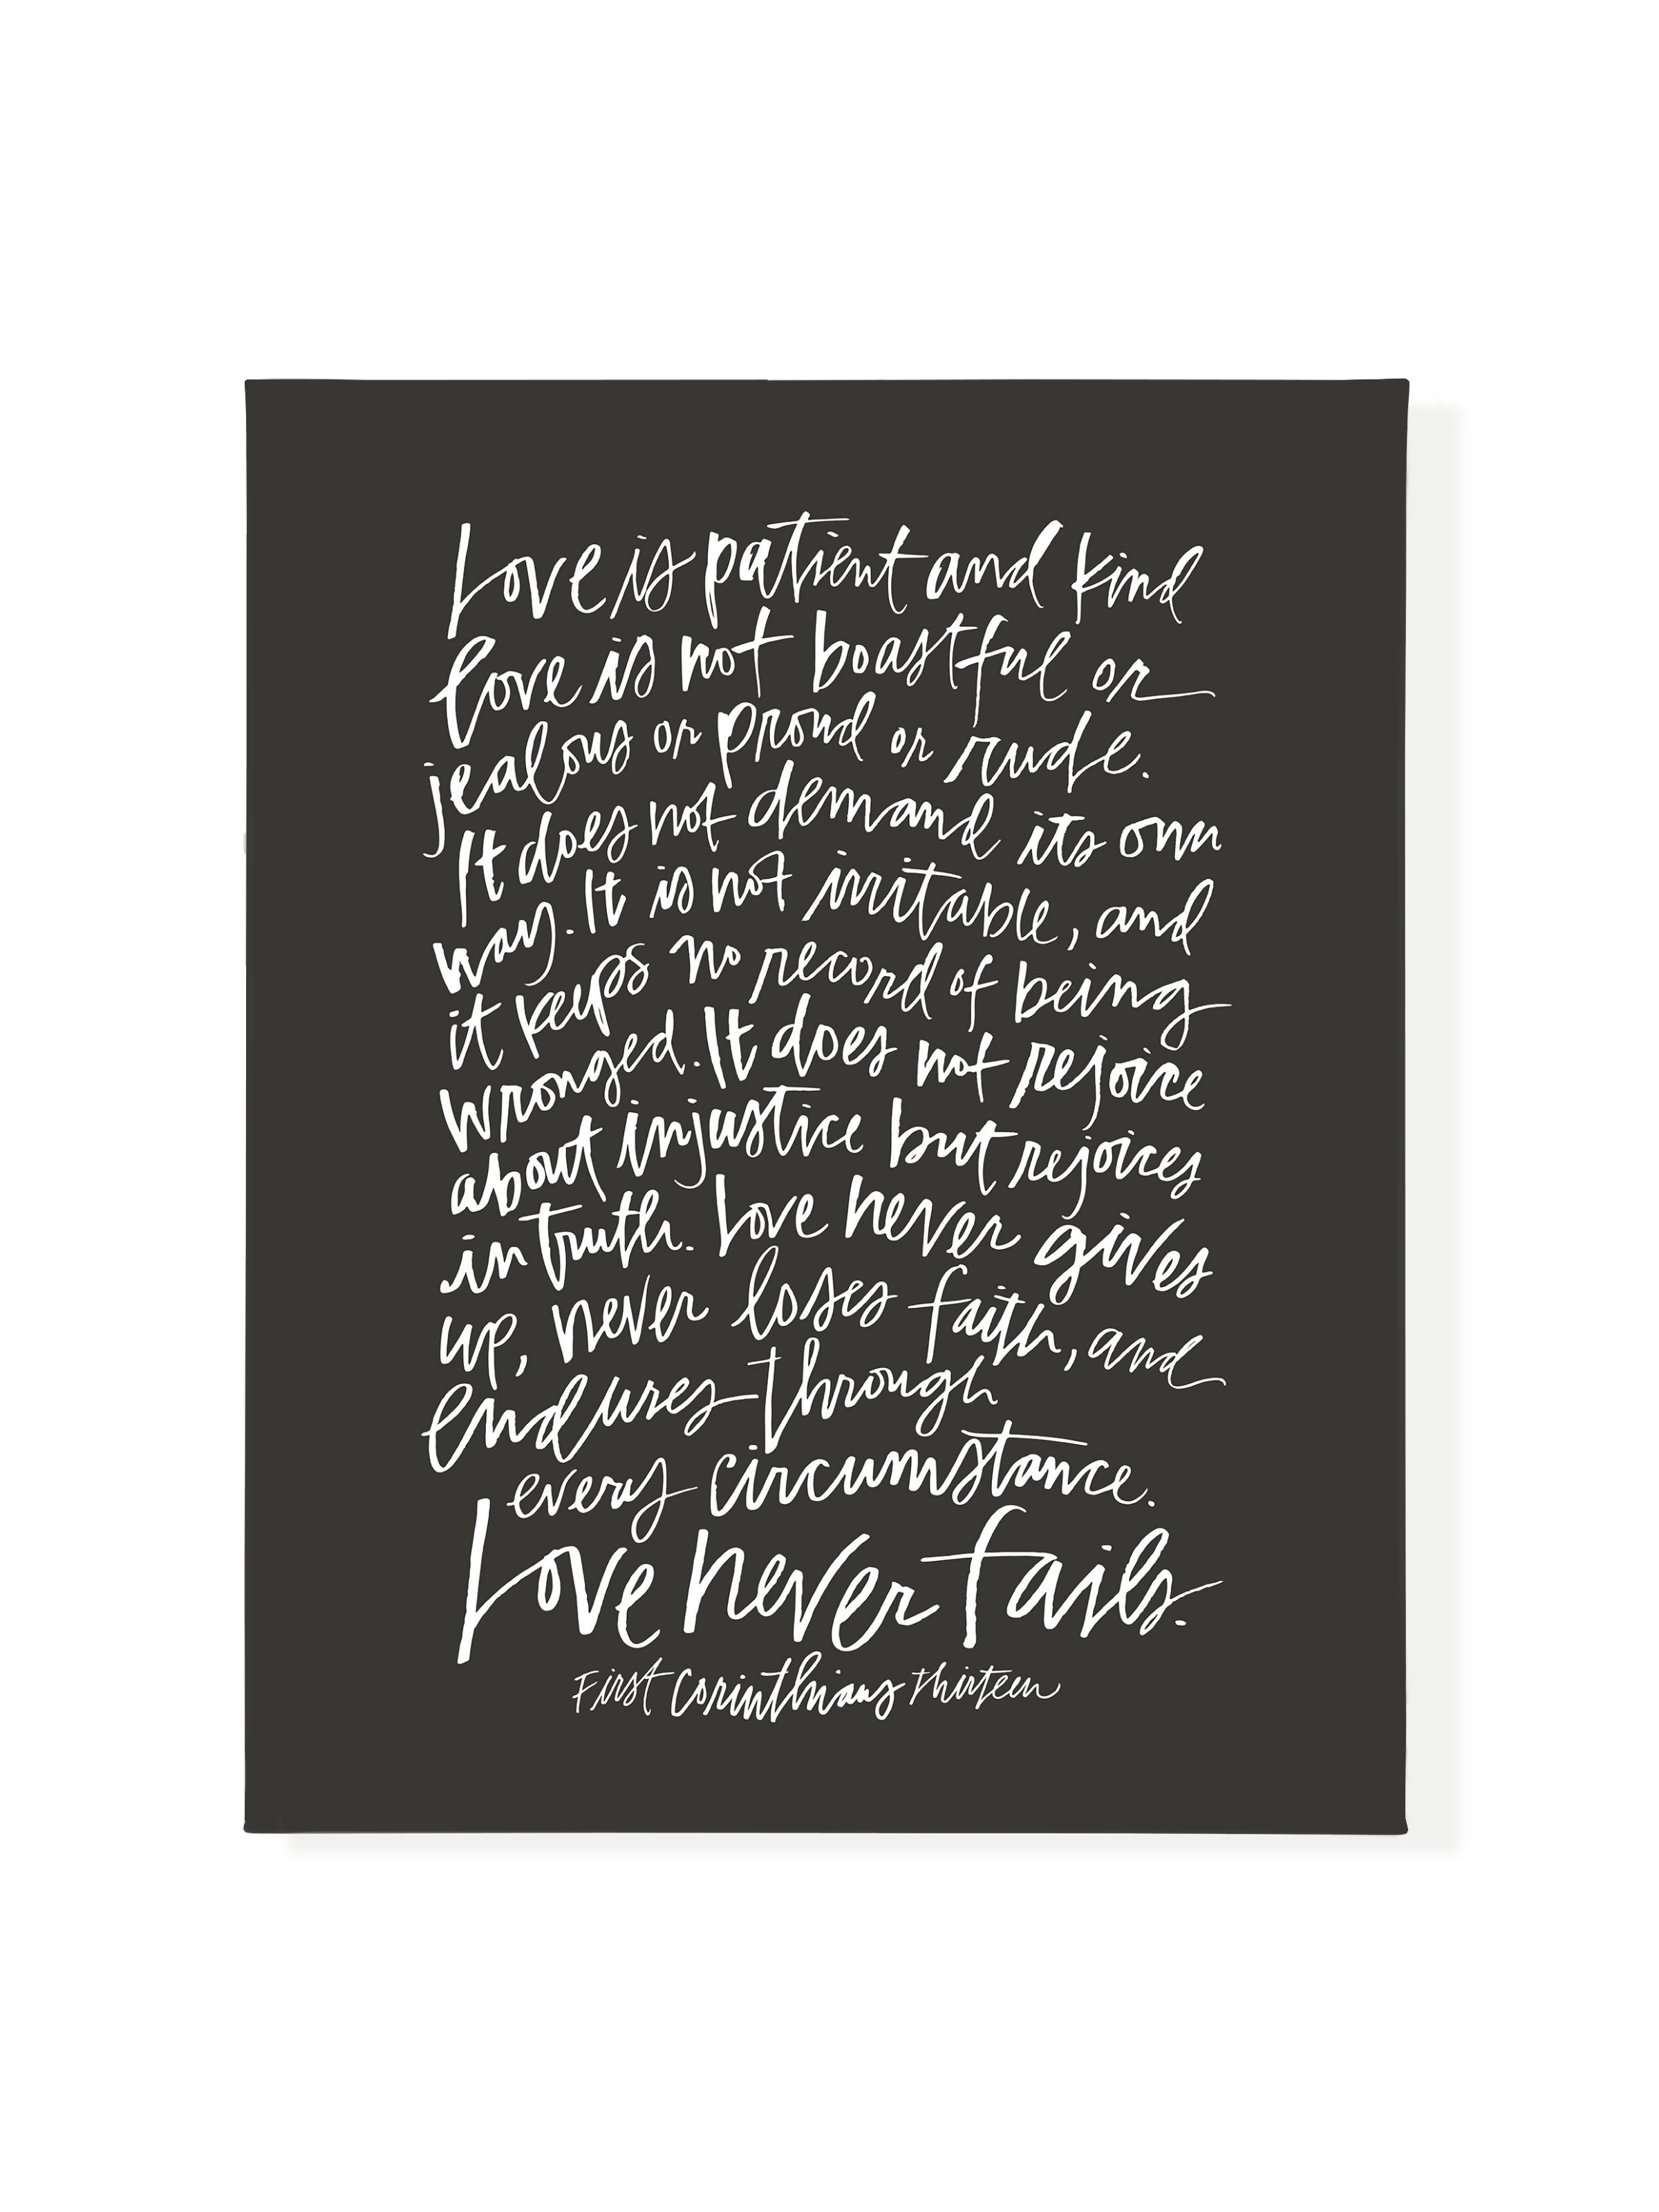 Love is patient and kind
love is not boastful or
jealous or proud or rude.
It does not demand its own
way. It is not irritable, and
it keeps no record of being
wronged. It does not rejoice
about injustice but rejoices
in truth. Love never gives
up, never loses faith, and
endures through
every circumstance.
Love never fails.
First Corinthians thirteen